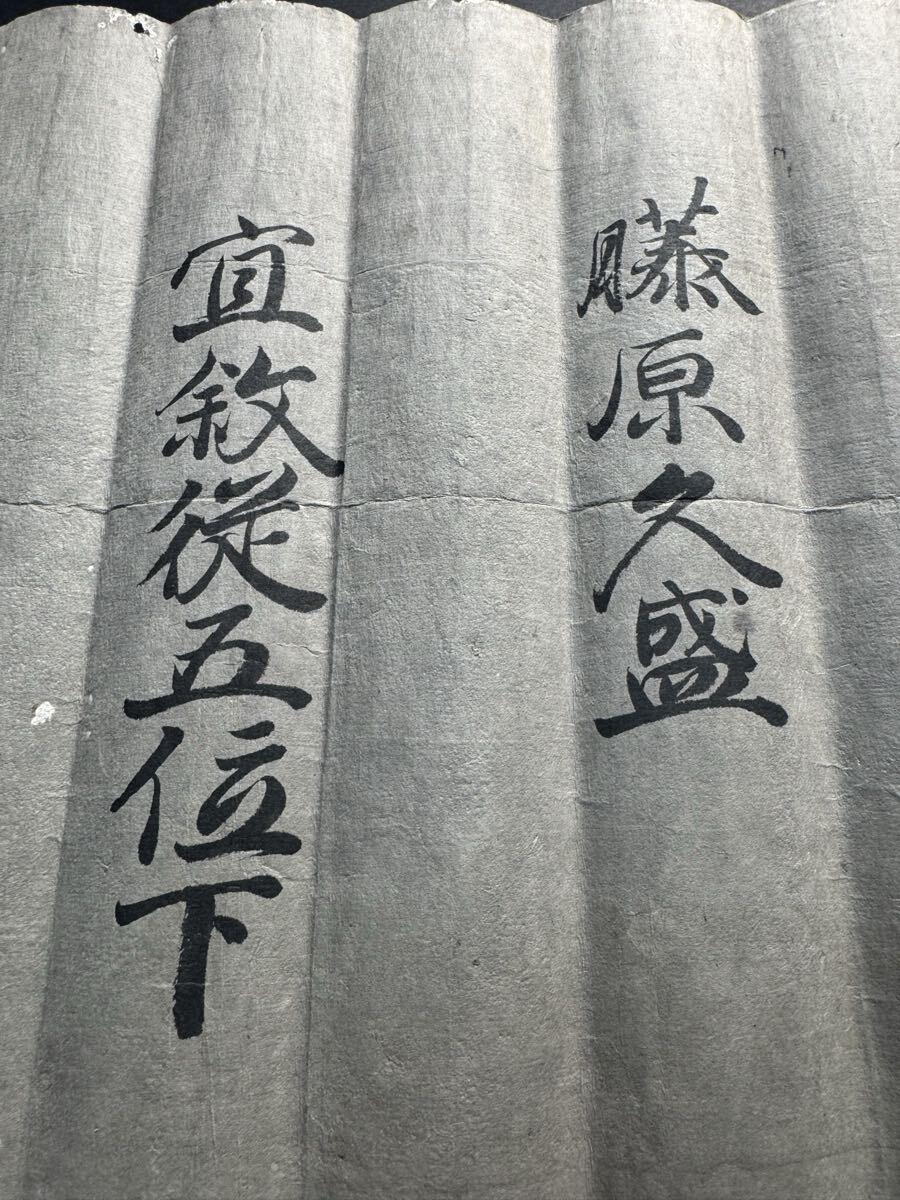 藤原久盛
宜敘從五位下